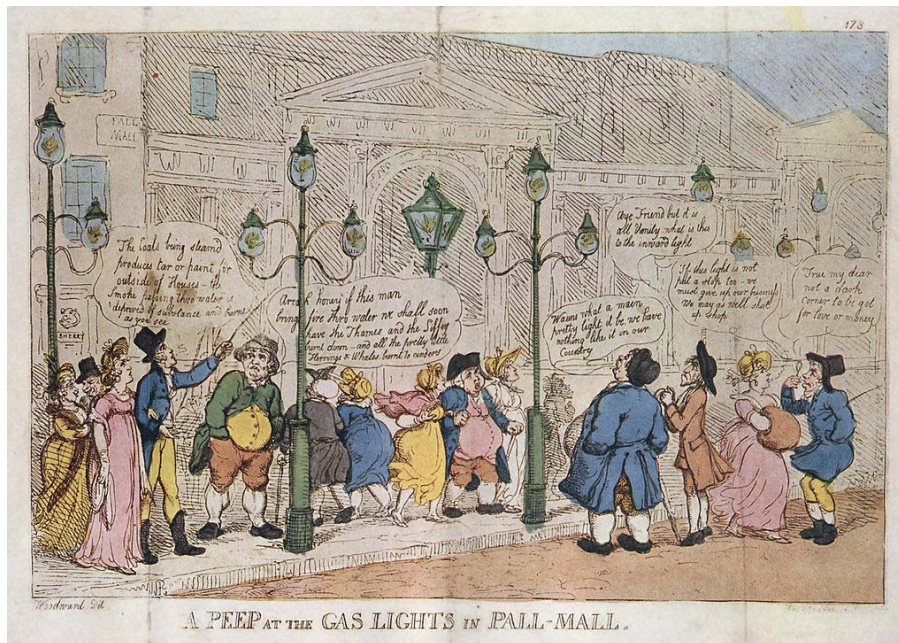 173
PALL
MALL
The Coals being steam'd
produces tar or paint for
outside of Houses - the
Smoke passing thro water is
deprived of substance and burns
as you see
Arrah honey if this man
bring fire thro water we shall soon
have the Thames and the Liffey
burnt down - and all the pretty little
Herrings & Whales burnt to cinders
Wauns what a main
pretty light it be we have
nothing like it in our
Country
Aye Friend but it is
all Vanity what is this
to the inward light
If this light is not
put a stop too - we
must give up our business
We may as well shut
up shop
True my dear
not a dark
corner to be got
for love or money
SHERRY
Woodward Del
A PEEP AT THE GAS LIGHTS IN PALL-MALL.